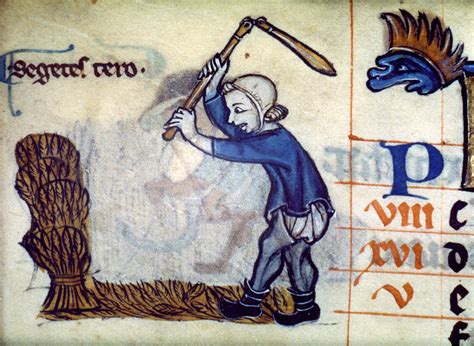 Segetes tero.
P
viii c
xvi d
v e
f